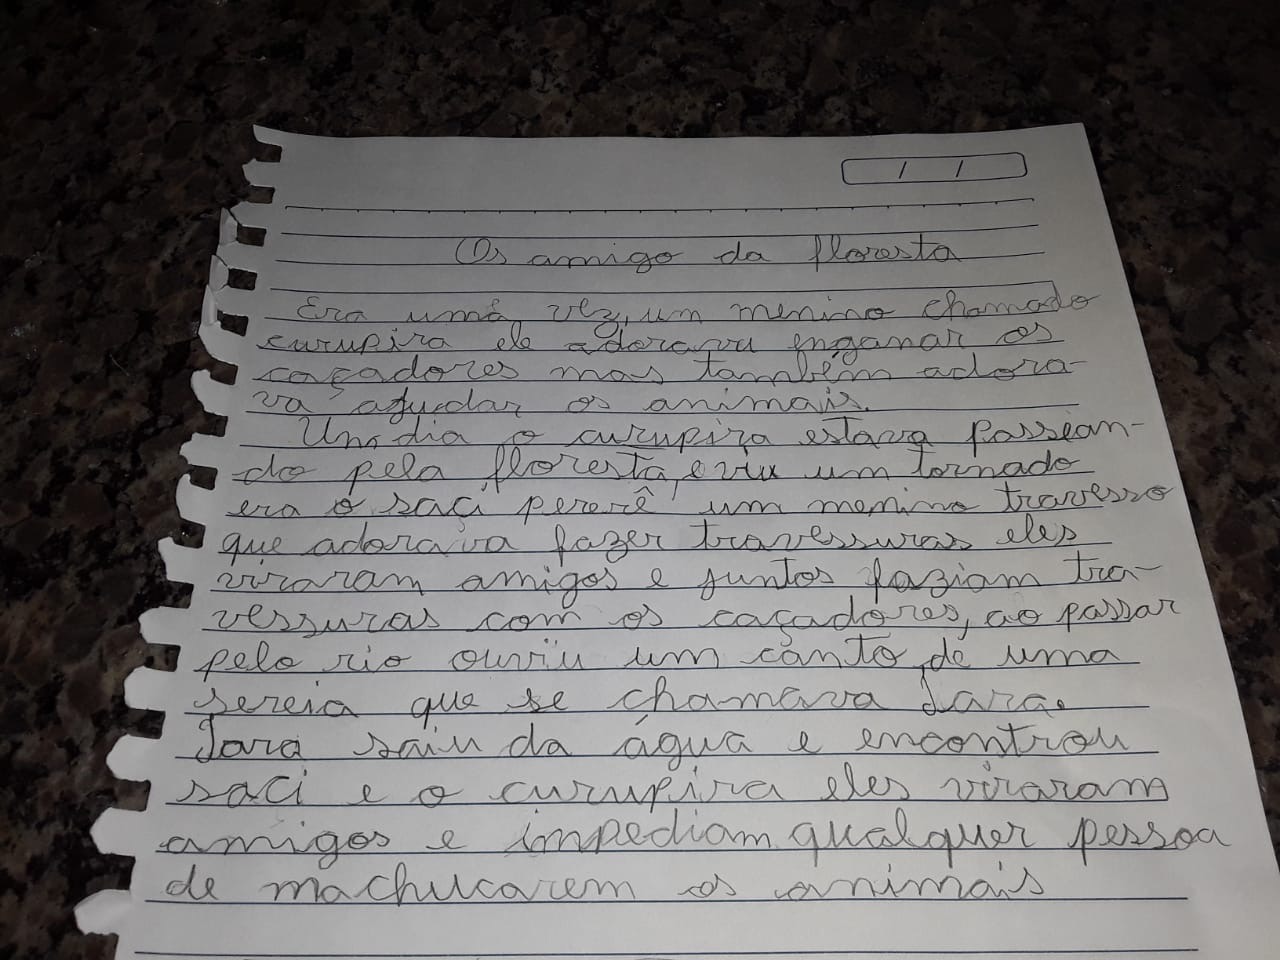 / /
Os amigo da floresta
Era uma vez, um menino chamado
curupira ele adorava enganar os
caçadores mas também adora-
va ajudar os animais.
Um dia o curupira estava passean-
do pela floresta, e viu um tornado
era o saçi pererê, um menino travesso
que adorava fazer travessuras eles
viraram amigos e juntos faziam tra-
vessuras com os caçadores, ao passar
pelo rio ouviu um canto, de uma
sereia que se chamava Iara.
Iara saiu da água e encontrou
saci e o curupira eles viraram
amigos e impediam qualquer pessoa
de machucarem os animais